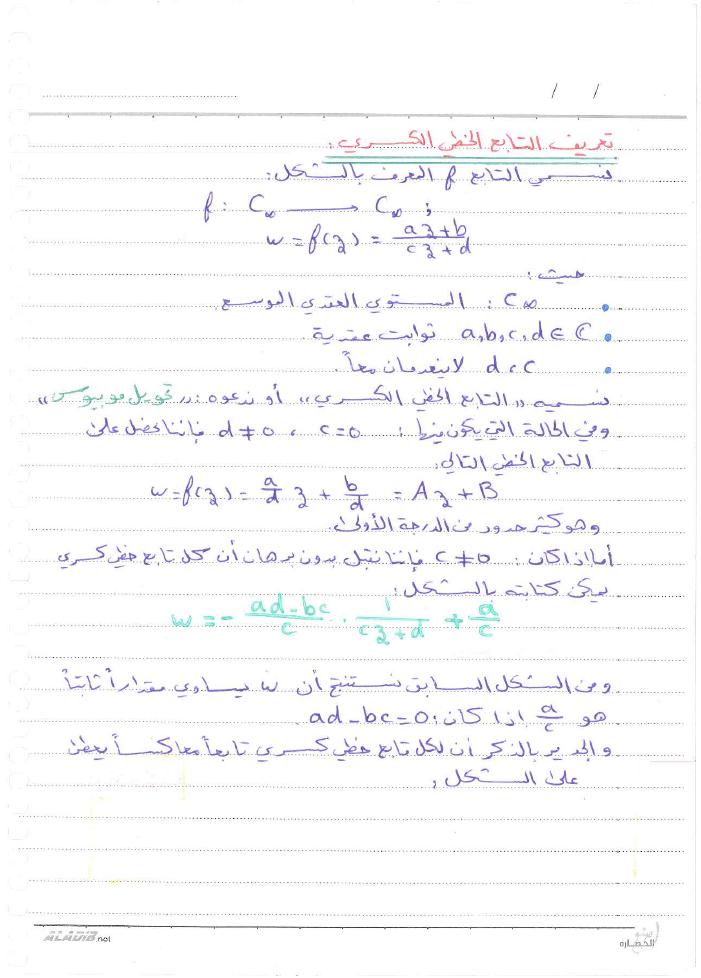 / /
تعريف التابع الخطي الكسري:
نسمي التابع f المعرف بالشكل:
f: C∞ → C∞ ;
w = f(z) = (az+b)/(cz+d)
حيث:
• C∞ : المستوي العقدي الموسع
• a,b,c,d ∈ C ثوابت عقدية.
• c ، d لا ينعدمان معاً.
نسميه «التابع الخطي الكسري»، أو ندعوه: «تحويل موبيوس»
وفي الحالة التي يكون فيها: c=0 ، d≠0 فإننا نحصل على
التابع الخطي التالي:
w=f(z) = a/d z + b/d = Az+B
وهو كثير حدود من الدرجة الأولى.
أما إذا كان: c≠0 فإننا نقبل بدون برهان أن كل تابع خطي كسري
يمكن كتابته بالشكل:
w = - (ad-bc)/c . 1/(cz+d) + a/c
ومن الشكل السابق نستنتج أن w يساوي مقداراً ثابتاً
هو a/c إذا كان: ad-bc=0.
والجدير بالذكر أن لكل تابع خطي كسري تابعاً معاكساً يعطى
على الشكل:
ALADIB.net
الحضاره